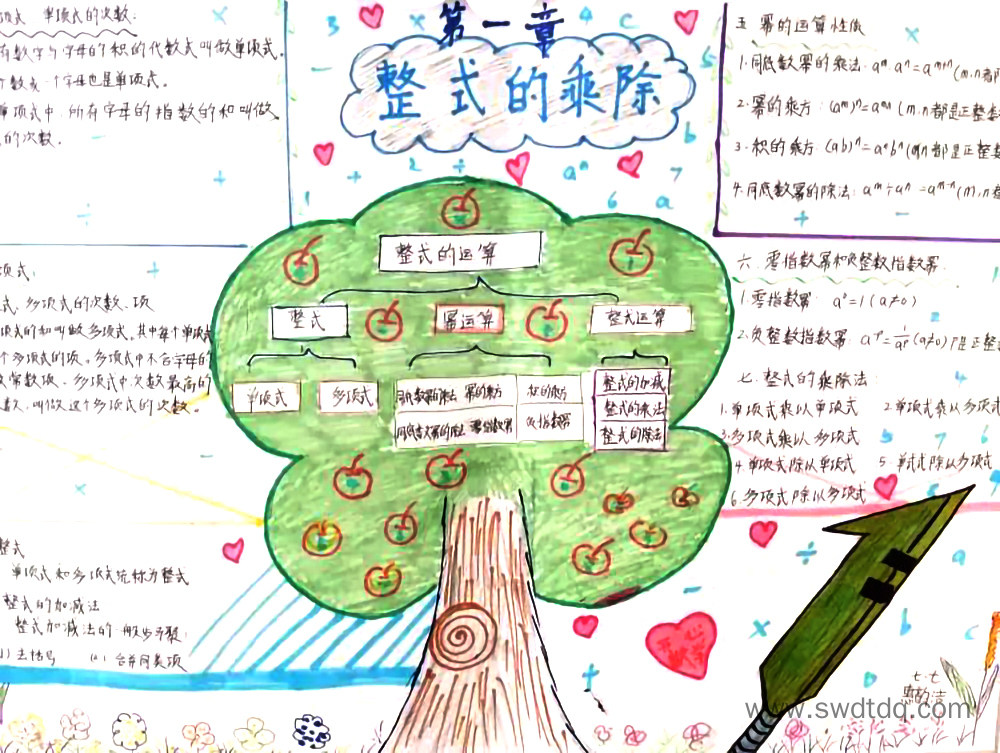 第一章
整式的乘除
项式 单项式的次数:
有数字与字母的积的代数式叫做单项式。
个数或一个字母也是单项式。
单项式中,所有字母的指数的和叫做
的次数。
项式:
式,多项式的次数、项
项式的和叫做多项式。其中每个单项式
个多项式的项。多项式中不含字母的
常数项。多项式中次数最高的
数,叫做这个多项式的次数。
整式
单项式和多项式统称为整式
整式的加减法
整式加减法的一般步骤:
(1) 去括号 (2) 合并同类项
整式的运算
整式 幂运算 整式运算
单项式 多项式
同底数幂的乘法 幂的乘方 积的乘方
同底数幂的除法 零指数幂 负指数幂
整式的加减
整式的乘法
整式的除法
五 幂的运算性质
1.同底数幂的乘法:aᵐ·aⁿ=aᵐ⁺ⁿ(m.n都
2.幂的乘方:(aᵐ)ⁿ=aᵐⁿ(m.n都是正整数
3.积的乘方:(ab)ⁿ=aⁿbⁿ(n都是正整数
4.同底数幂的除法:aᵐ÷aⁿ=aᵐ⁻ⁿ(m,n都
六.零指数幂和负整数指数幂.
1.零指数幂:a⁰=1(a≠0)
2.负整数指数幂:a⁻ᵖ=1/aᵖ(a≠0)P是正整
七.整式的乘除法:
1.单项式乘以单项式 2.单项式乘以多项式
3.多项式乘以多项式
4.单项式除以单项式 5.单式除以多项式
6.多项式除以多项式
七.七
www.swdtdq.com